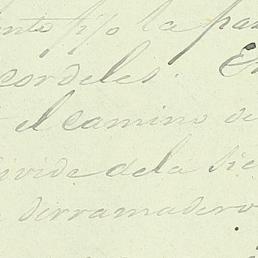 ento p/o la par
cordeles. En
el camino de
ivide dela sie
derramadero